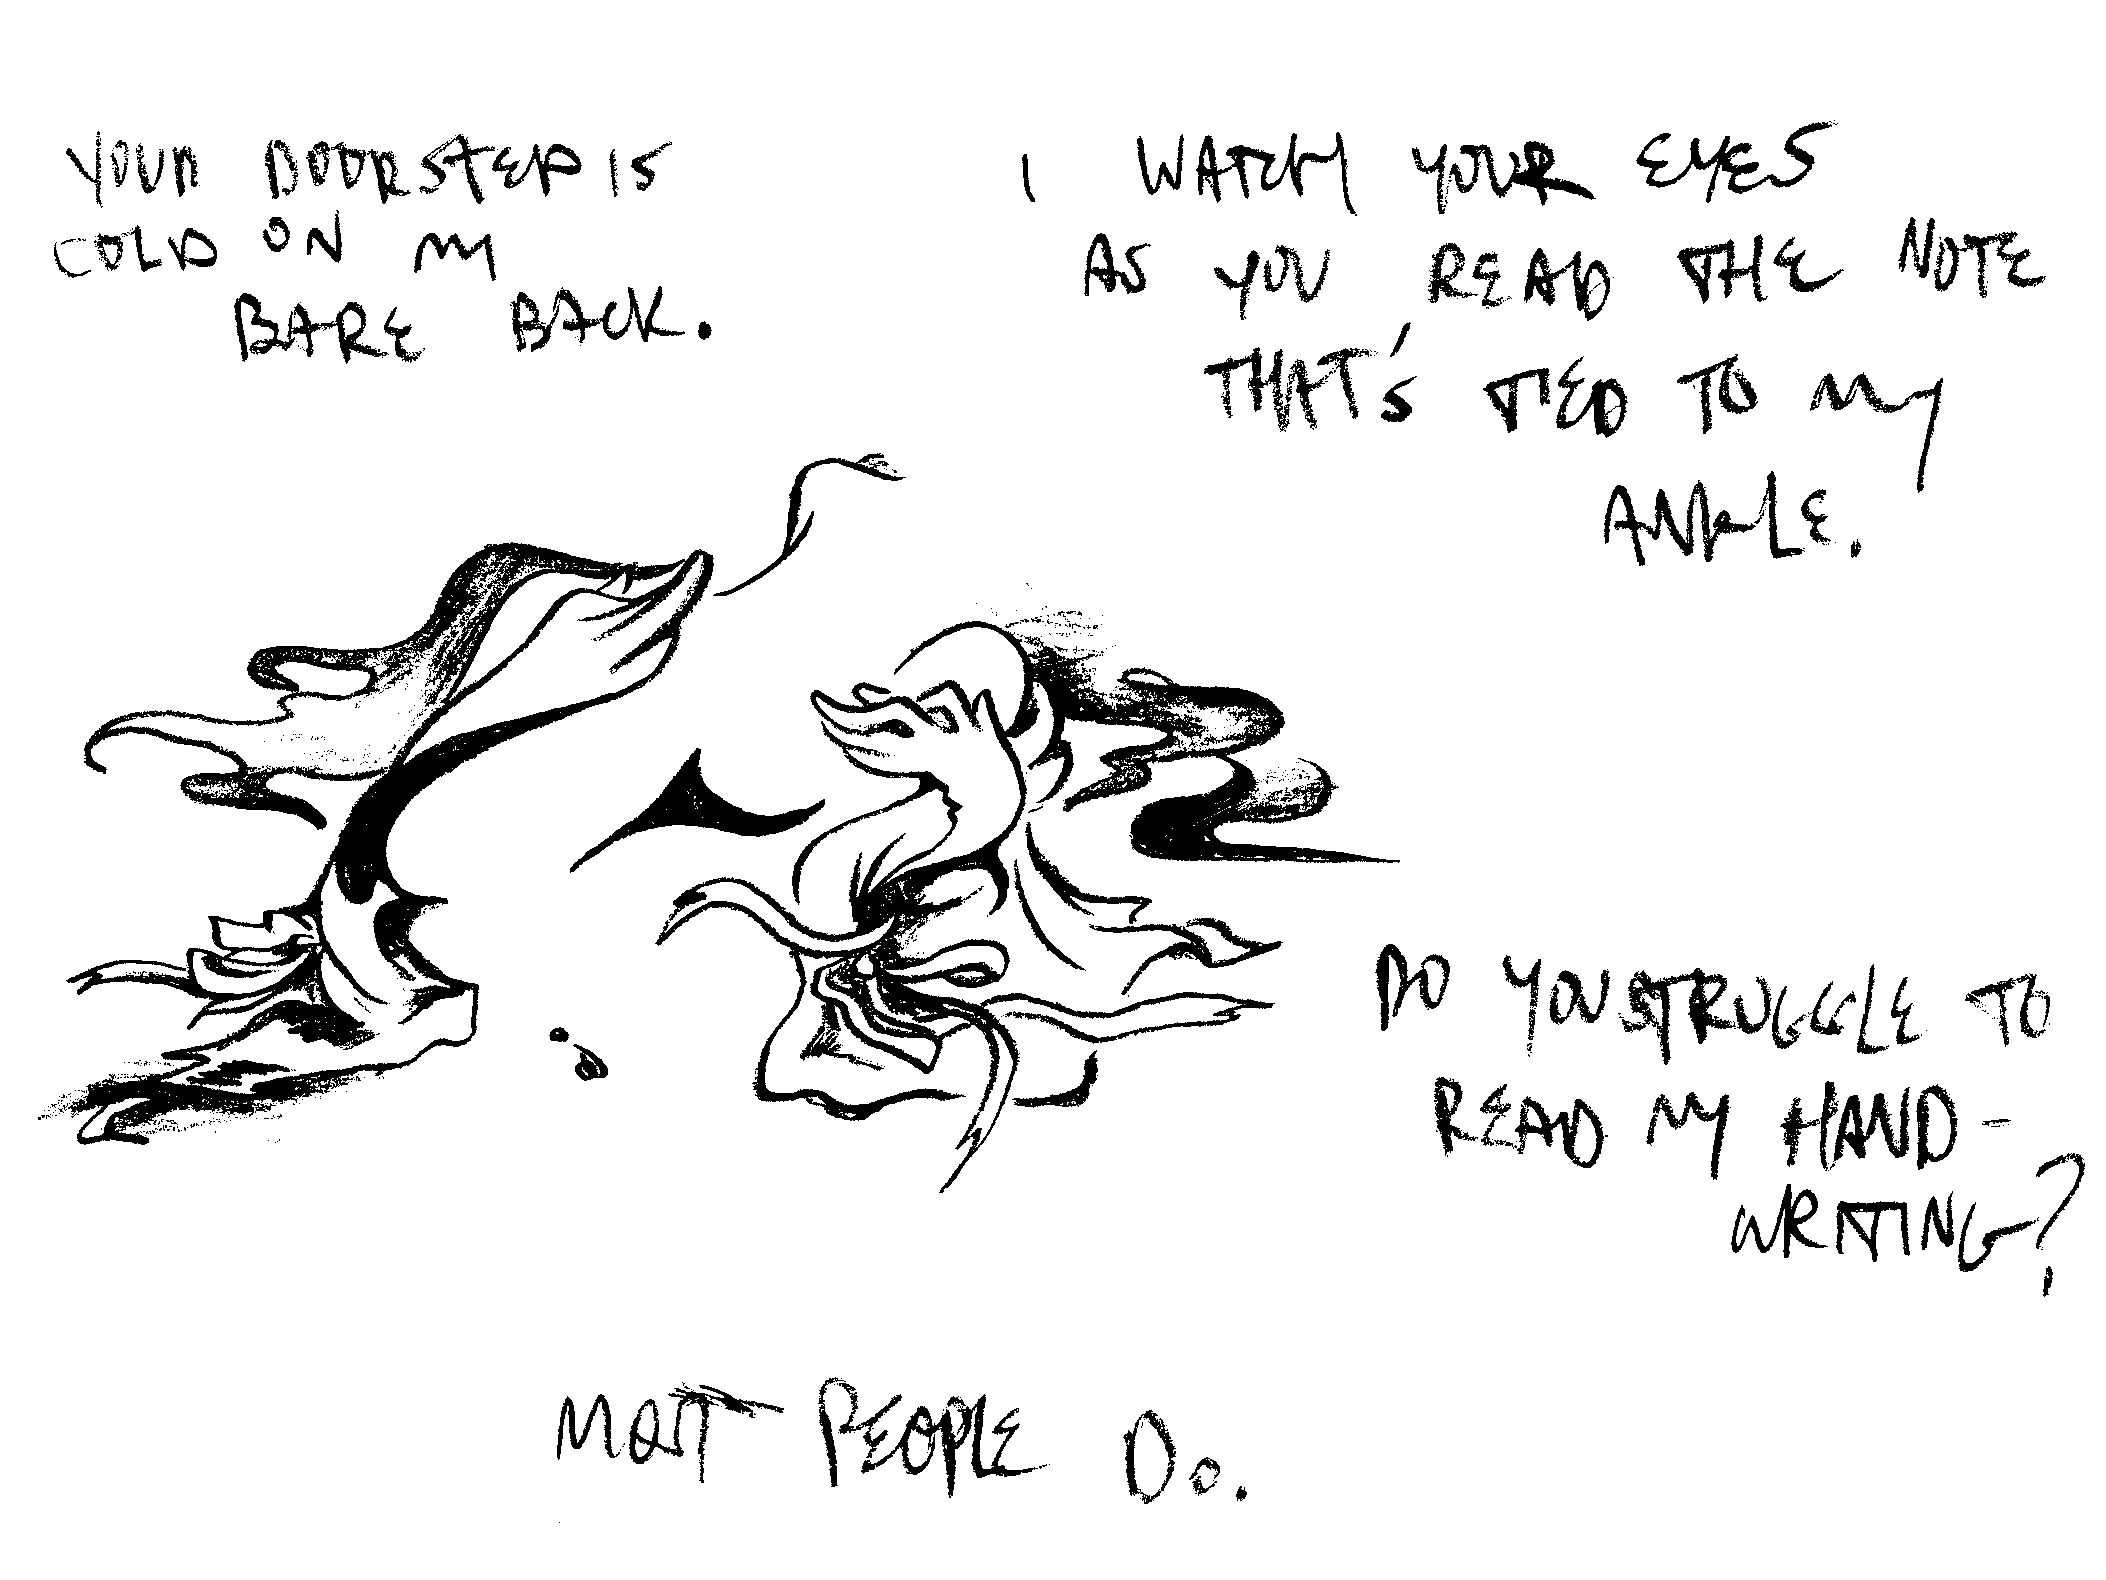 YOUR DOORSTEP IS
COLD ON MY
BARE BACK.
I WATCH YOUR EYES
AS YOU READ THE NOTE
THAT'S TIED TO MY
ANKLE.
DO YOU STRUGGLE TO
READ MY HAND-
WRITING?
MOST PEOPLE DO.